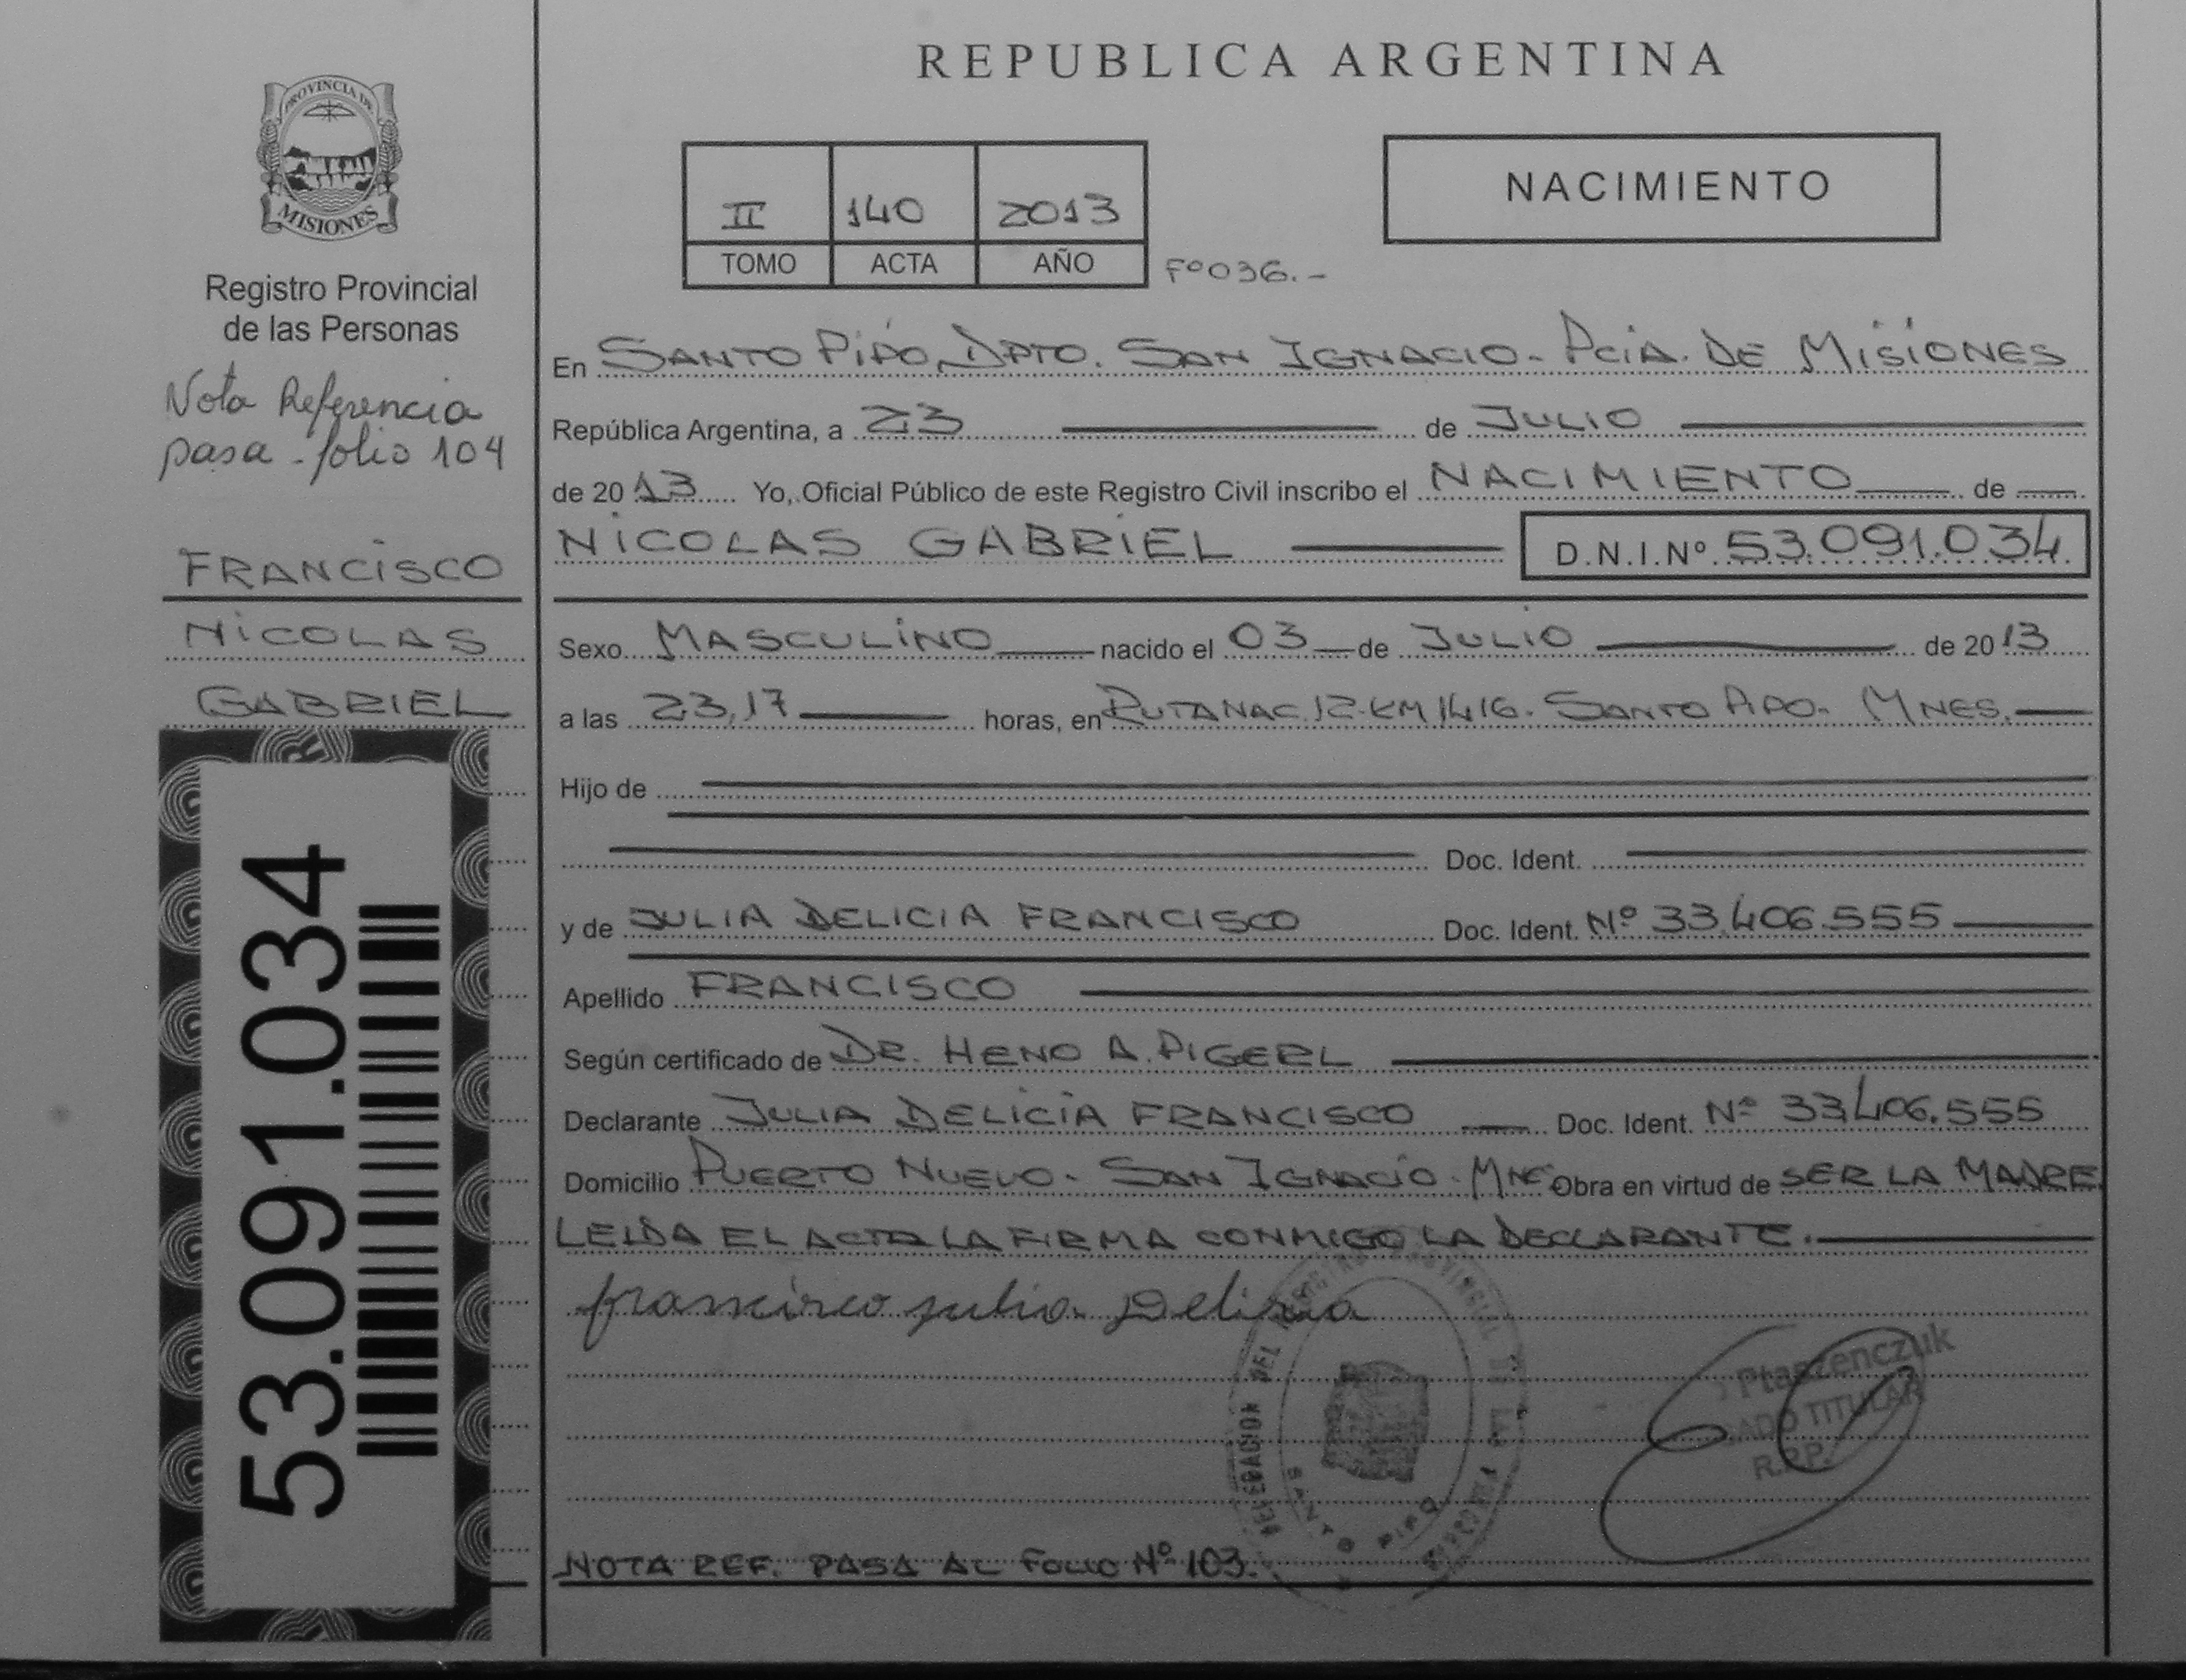 REPUBLICA ARGENTINA
PROVINCIA DE
MISIONES
Registro Provincial
de las Personas
Nota Referencia
pasa - folio 104
FRANCISCO
NICOLAS
GABRIEL
53.091.034
II 140 2013
TOMO ACTA AÑO
Fº036.-
NACIMIENTO
En SANTO PIPÓ, DPTO. SAN IGNACIO - PCIA. DE MISIONES
República Argentina, a 23 de JULIO
de 2013 Yo, Oficial Público de este Registro Civil inscribo el NACIMIENTO de
NICOLAS GABRIEL D.N.I.Nº 53.091.034
Sexo MASCULINO nacido el 03 de JULIO de 2013
a las 23,17 horas, en RUTA NAC. 12 - KM 1416 - SANTO PIPO - MNES.
Hijo de
Doc. Ident.
y de JULIA DELICIA FRANCISCO Doc. Ident. Nº 33.406.555
Apellido FRANCISCO
Según certificado de DR. HENO A. PIGERL
Declarante JULIA DELICIA FRANCISCO Doc. Ident. Nº 33.406.555
Domicilio PUERTO NUEVO - SAN IGNACIO - MNES Obra en virtud de SER LA MADRE
LEIDA EL ACTA LA FIRMA CONMIGO LA DECLARANTE.
francisco julia Delicia
DELEGACION DEL REGISTRO PROVINCIAL DE LAS PERSONAS
SANTO PIPO
Ptaszenczuk
GADO TITULAR
R.P.P.
NOTA REF. PASA AL FOLIO Nº 103.